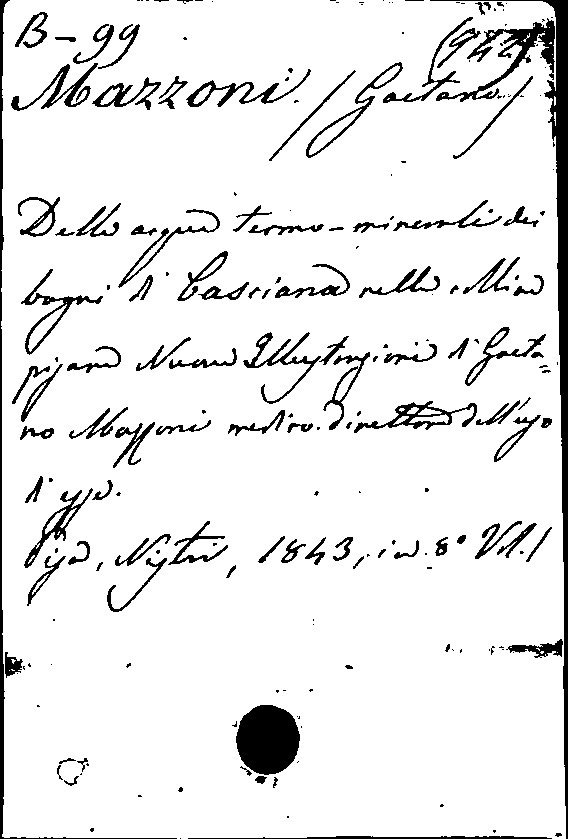 B-99 (942).
Mazzoni. / Gaetano /
Delle acque termo-minerali dei
bagni di Casciana nelle colline
pisane Nuove Illustrazioni di Gaeta=
no Mazzoni medico direttore dell'uso
di esse.
Pisa, Nistri, 1843, in 8° Vol. 1